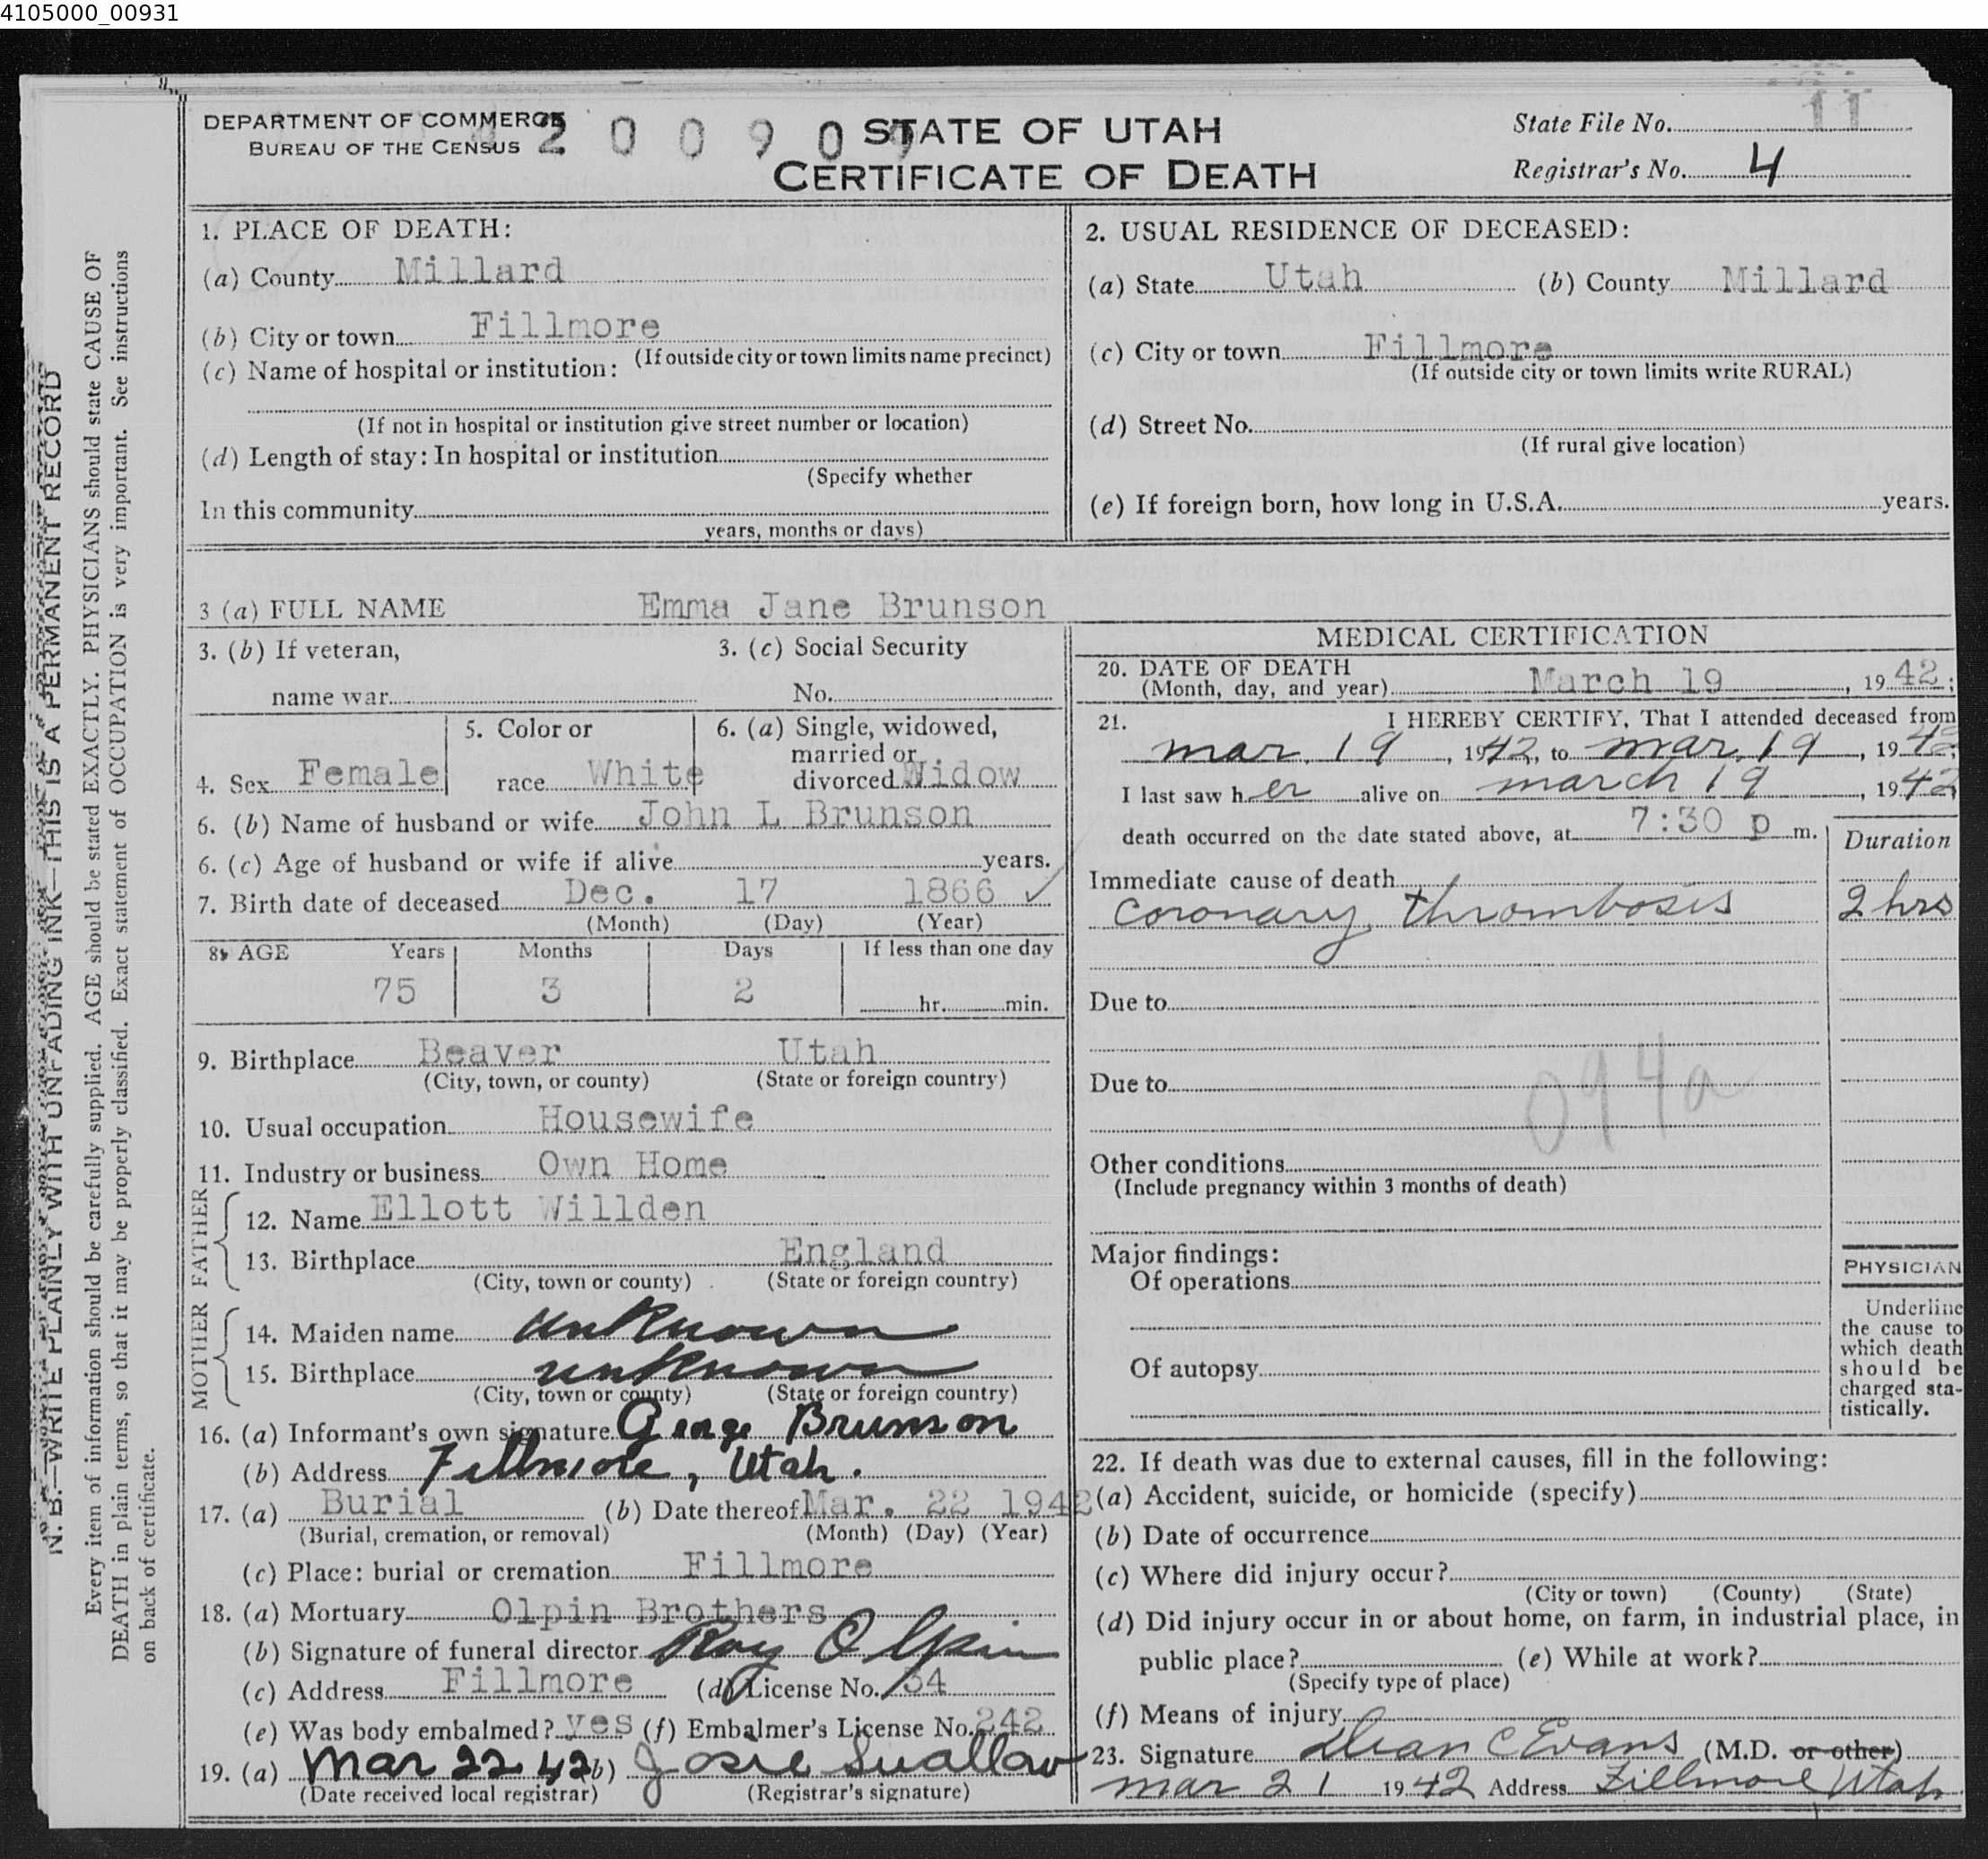 4105000_00931
DEPARTMENT OF COMMERCE
BUREAU OF THE CENSUS
STATE OF UTAH
CERTIFICATE OF DEATH
State File No. 11
Registrar's No. 4
1. PLACE OF DEATH:
(a) County Millard
(b) City or town Fillmore
(If outside city or town limits name precinct)
(c) Name of hospital or institution:
(If not in hospital or institution give street number or location)
(d) Length of stay: In hospital or institution
(Specify whether
In this community
years, months or days)
2. USUAL RESIDENCE OF DECEASED:
(a) State Utah (b) County Millard
(c) City or town Fillmore
(If outside city or town limits write RURAL)
(d) Street No.
(If rural give location)
(e) If foreign born, how long in U.S.A. years.
3 (a) FULL NAME Emma Jane Brunson
3. (b) If veteran, 3. (c) Social Security
name war No.
4. Sex Female 5. Color or race White 6. (a) Single, widowed, married or divorced Widow
6. (b) Name of husband or wife John L Brunson
6. (c) Age of husband or wife if alive years.
7. Birth date of deceased Dec. 17 1866 ✓
(Month) (Day) (Year)
8. AGE Years Months Days If less than one day
75 3 2 hr. min.
9. Birthplace Beaver Utah
(City, town, or county) (State or foreign country)
10. Usual occupation Housewife
11. Industry or business Own Home
FATHER
12. Name Ellott Willden
13. Birthplace England
(City, town or county) (State or foreign country)
MOTHER
14. Maiden name unknown
15. Birthplace unknown
(City, town or county) (State or foreign country)
16. (a) Informant's own signature George Brunson
(b) Address Fillmore, Utah.
17. (a) Burial (b) Date thereof Mar. 22 1942
(Burial, cremation, or removal) (Month) (Day) (Year)
(c) Place: burial or cremation Fillmore
18. (a) Mortuary Olpin Brothers
(b) Signature of funeral director Roy Olpin
(c) Address Fillmore (d) License No. 34
(e) Was body embalmed? yes (f) Embalmer's License No. 242
19. (a) Mar 22 42 (b) Josie Swallow
(Date received local registrar) (Registrar's signature)
MEDICAL CERTIFICATION
20. DATE OF DEATH
(Month, day, and year) March 19, 1942;
21. I HEREBY CERTIFY, That I attended deceased from
mar. 19, 1942, to mar. 19, 1942;
I last saw her alive on march 19, 1942
death occurred on the date stated above, at 7:30 p m.
Duration
Immediate cause of death
Coronary thrombosis 2 hrs
Due to
Due to
094a
Other conditions
(Include pregnancy within 3 months of death)
Major findings:
Of operations
Of autopsy
PHYSICIAN
Underline
the cause to
which death
should be
charged sta-
tistically.
22. If death was due to external causes, fill in the following:
(a) Accident, suicide, or homicide (specify)
(b) Date of occurrence
(c) Where did injury occur?
(City or town) (County) (State)
(d) Did injury occur in or about home, on farm, in industrial place, in
public place? (e) While at work?
(Specify type of place)
(f) Means of injury
23. Signature Dean C Evans (M.D. or other)
mar 21 1942 Address Fillmore Utah
N. B.—WRITE PLAINLY WITH UNFADING INK—THIS IS A PERMANENT RECORD
Every item of information should be carefully supplied. AGE should be stated EXACTLY. PHYSICIANS should state CAUSE OF
DEATH in plain terms, so that it may be properly classified. Exact statement of OCCUPATION is very important. See instructions
on back of certificate.